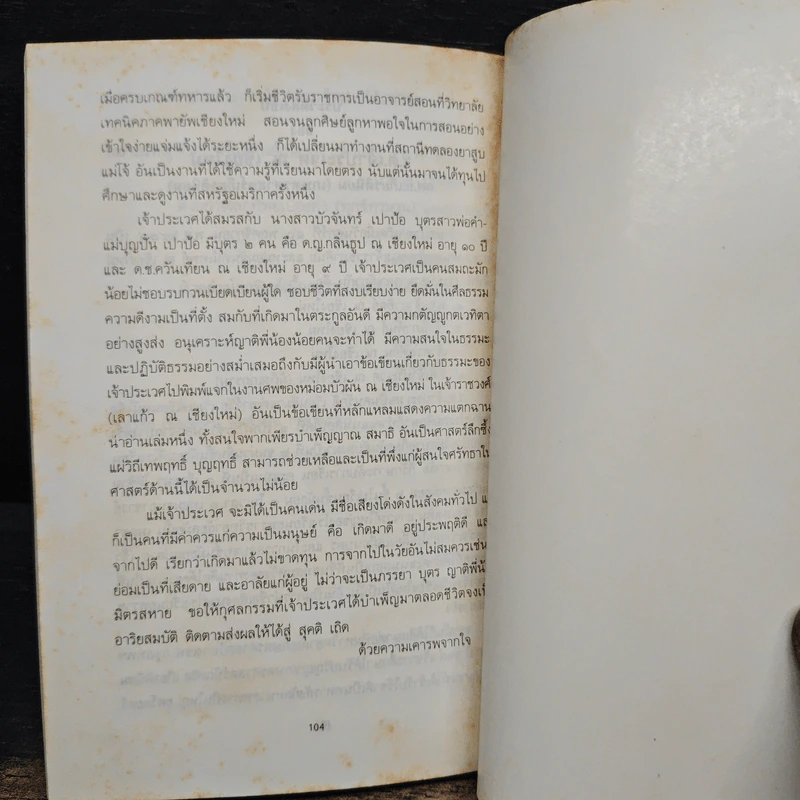 เมื่อครบเกณฑ์ทหารแล้ว ก็เริ่มชีวิตรับราชการเป็นอาจารย์สอนที่วิทยาลัย
เทคนิคภาคพายัพเชียงใหม่ สอนจนลูกศิษย์ลูกหาพอใจในการสอนอย่าง
เข้าใจง่ายแจ่มแจ้งได้ระยะหนึ่ง ก็ได้เปลี่ยนมาทำงานที่สถานีทดลองยาสูบ
แม่โจ้ อันเป็นงานที่ได้ใช้ความรู้ที่เรียนมาโดยตรง นับแต่นั้นมาจนได้ทุนไป
ศึกษาและดูงานที่สหรัฐอเมริกาครั้งหนึ่ง
เจ้าประเวศได้สมรสกับ นางสาวบัวจันทร์ เปาป้อ บุตรสาวพ่อคำ-
แม่บุญปั๋น เปาป้อ มีบุตร ๒ คน คือ ด.ญ.กลิ่นธูป ณ เชียงใหม่ อายุ ๑๐ ปี
และ ด.ช.ควันเทียน ณ เชียงใหม่ อายุ ๙ ปี เจ้าประเวศเป็นคนสมถะมัก
น้อยไม่ชอบรบกวนเบียดเบียนผู้ใด ชอบชีวิตที่สงบเรียบง่าย ยึดมั่นในศีลธรรม
ความดีงามเป็นที่ตั้ง สมกับที่เกิดมาในตระกูลอันดี มีความกตัญญูกตเวทิตา
อย่างสูงส่ง อนุเคราะห์ญาติพี่น้องน้อยคนจะทำได้ มีความสนใจในธรรมะ
และปฏิบัติธรรมอย่างสม่ำเสมอถึงกับมีผู้นำเอาข้อเขียนเกี่ยวกับธรรมะของ
เจ้าประเวศไปพิมพ์แจกในงานศพของหม่อมบัวผัน ณ เชียงใหม่ ในเจ้าราชวงศ์
(เลาแก้ว ณ เชียงใหม่) อันเป็นข้อเขียนที่หลักแหลมแสดงความแตกฉาน
น่าอ่านเล่มหนึ่ง ทั้งสนใจพากเพียรบำเพ็ญญาณ สมาธิ อันเป็นศาสตร์ลึกซึ้ง
แผ่วิถีเทพฤทธิ์ บุญฤทธิ์ สามารถช่วยเหลือและเป็นที่พึ่งแก่ผู้สนใจศรัทธาใน
ศาสตร์ด้านนี้ได้เป็นจำนวนไม่น้อย
แม้เจ้าประเวศ จะมิได้เป็นคนเด่น มีชื่อเสียงโด่งดังในสังคมทั่วไป
ก็เป็นคนที่มีค่าควรแก่ความเป็นมนุษย์ คือ เกิดมาดี อยู่ประพฤติดี
จากไปดี เรียกว่าเกิดมาแล้วไม่ขาดทุน การจากไปในวัยอันไม่สมควรเช่น
ย่อมเป็นที่เสียดาย และอาลัยแก่ผู้อยู่ ไม่ว่าจะเป็นภรรยา บุตร ญาติพี่น้
มิตรสหาย ขอให้กุศลกรรมที่เจ้าประเวศได้บำเพ็ญมาตลอดชีวิตจงเป็
อาริยสมบัติ ติดตามส่งผลให้ได้สู่ สุคติ เถิด
ด้วยความเคารพจากใจ
104